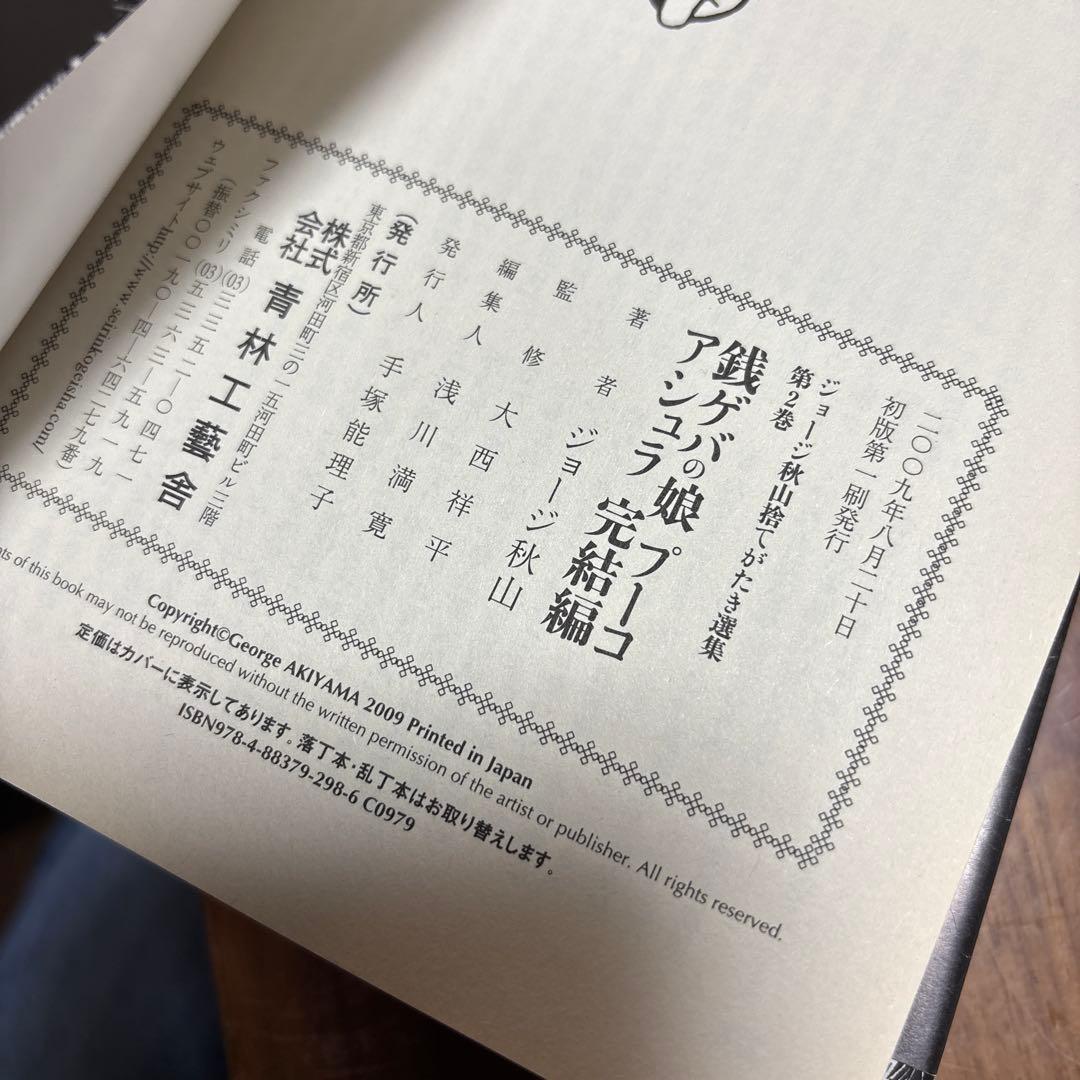 二〇〇九年八月二十日
初版第一刷発行
ジョージ秋山捨てがたき選集
第2巻
銭ゲバの娘プーコ
アシュラ 完結編
著者 ジョージ秋山
監修 大西祥平
編集人 浅川満寛
発行人 手塚能理子
(発行所)
東京都新宿区河田町三の一五河田町ビル三階
株式会社 青林工藝舎
電話 (03)三三五二―〇四七一
ファクシミリ (03)五三六三―五九一九
(振替〇〇一九〇―四―六四二七九番)
ウェブサイトhttp://www.seirinkogeisha.com/
Copyright©George AKIYAMA 2009 Printed in Japan
of this book may not be reproduced without the written permission of the artist or publisher. All rights reserved.
定価はカバーに表示してあります。落丁本・乱丁本はお取り替えします。
ISBN978-4-88379-298-6 C0979